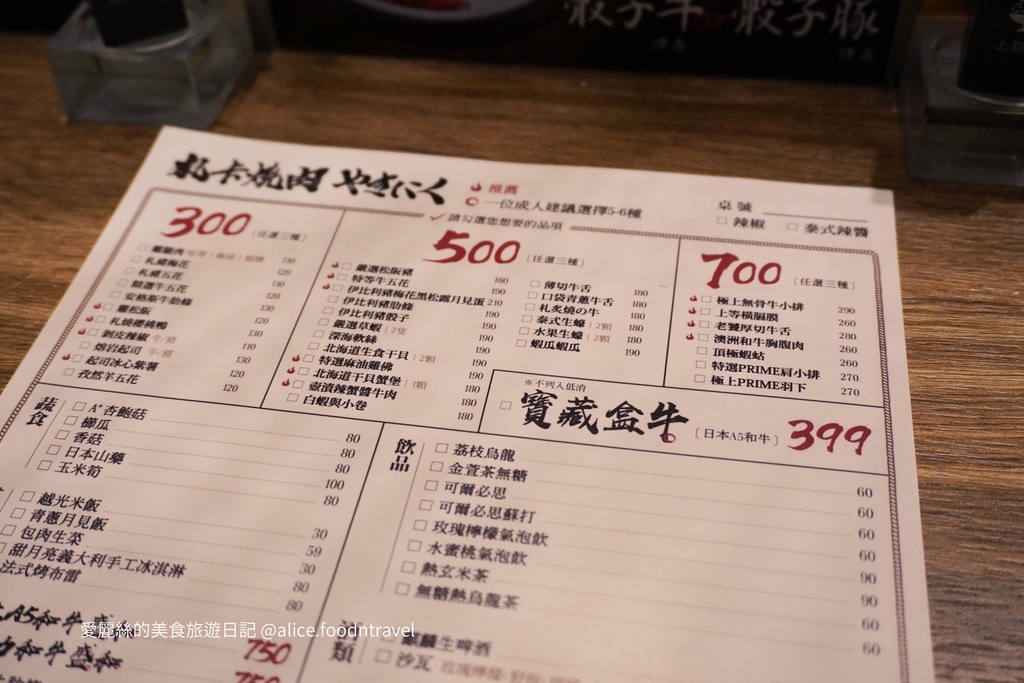 骰子牛or骰子豚
札卡燒肉 やきにく
推薦
一位成人建議選擇5-6種
桌號
請勾選您想要的品項
辣椒 泰式辣醬
300 (任選三種)
札豬梅花 120
札豬五花 120
精選牛五花
安格斯牛肋條
雞松阪
札燒櫻桃鴨
剝皮辣椒 牛/豬
熔岩起司 牛/豬
起司冰心紫薯
孜然羊五花 120
500 (任選三種)
嚴選松阪豬 180
特等牛五花 190
伊比利豬梅花黑松露月見蛋 210
伊比利豬肋條 190
伊比利豬骰子 190
嚴選草蝦 | 2隻 190
深海軟絲 190
北海道生食干貝 | 2顆 190
特選麻油雞佛 180
北海道干貝蟹堡 | 1顆 190
壺漬辣蟹醬牛肉 180
白蝦與小卷 180
薄切牛舌 180
口袋青蔥牛舌 180
札炙燒の牛 180
泰式生蠔 | 2顆 180
水果生蠔 | 2顆 180
蝦瓜蝦瓜 190
700 (任選三種)
極上無骨牛小排 290
上等橫膈膜 260
老饕厚切牛舌 280
澳洲和牛胸腹肉 260
頂極蝦蛄 260
特選PRIME肩小排 270
極上PRIME羽下 270
※不列入低消
寶藏盒牛 (日本A5和牛) 399
蔬食
A+杏鮑菇 80
櫛瓜 80
香菇 80
日本山藥 100
玉米筍 80
越光米飯 30
青蔥月見飯 59
包肉生菜 30
甜月亮義大利手工冰淇淋 80
法式烤布蕾 80
飲品
荔枝烏龍 60
金萱茶無糖 60
可爾必思 60
可爾必思蘇打 60
玫瑰檸檬氣泡飲 90
水蜜桃氣泡飲 90
熱玄米茶 60
無糖熱烏龍茶 60
A5和牛盛 750
和牛盛和 750
類
麒麟生啤酒
沙瓦
愛麗絲的美食旅遊日記 @alice.foodntravel